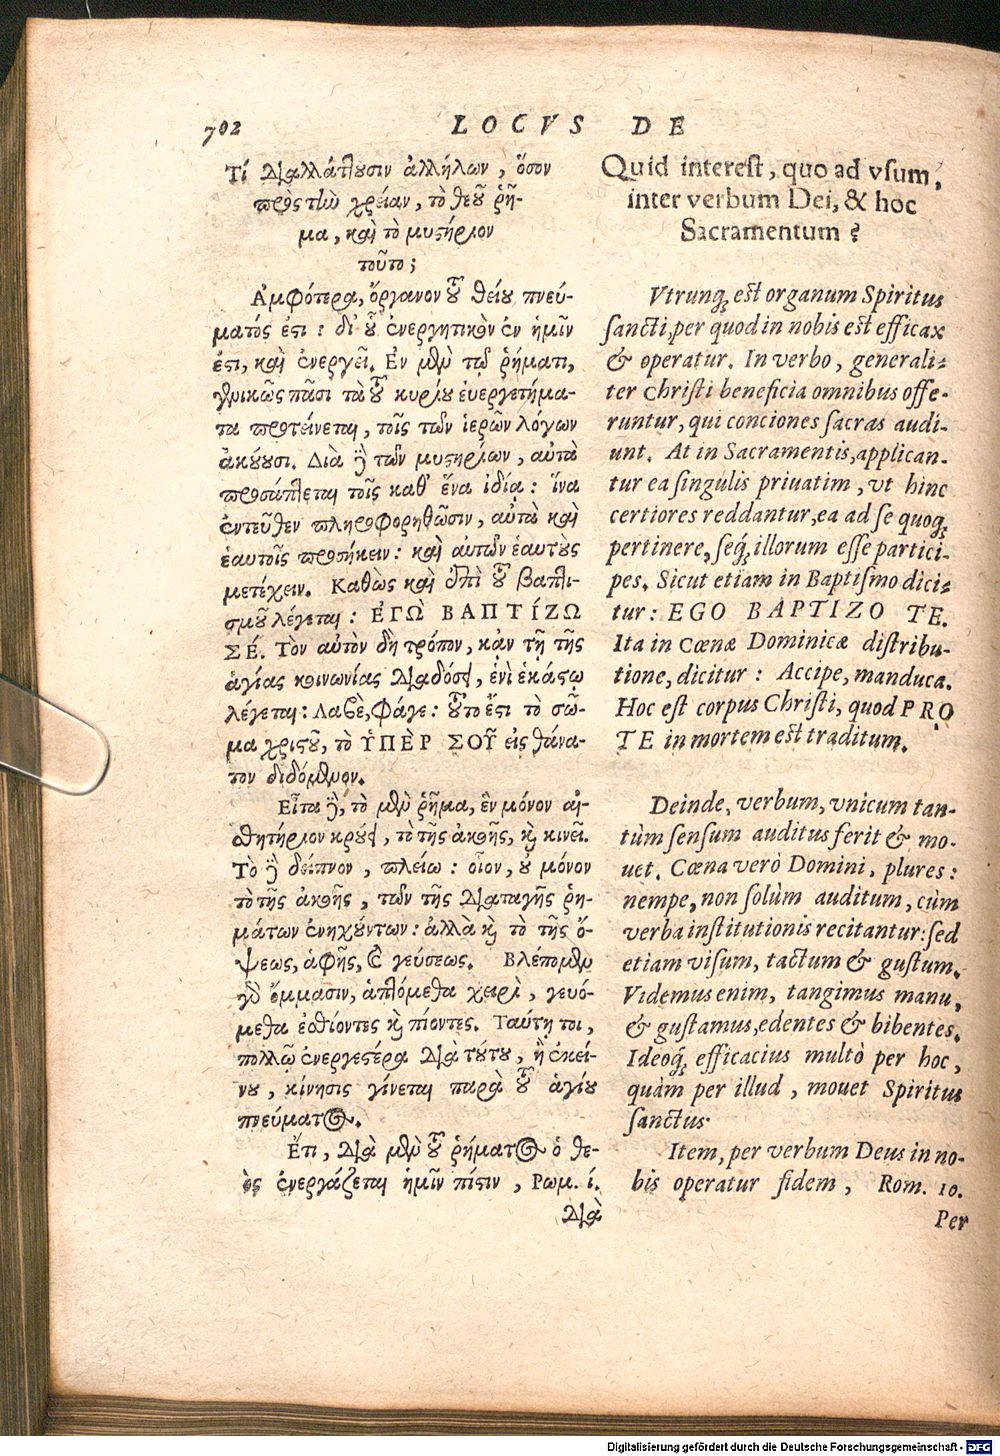 702
LOCVS DE
Τί διαλλάττουσιν ἀλλήλων, ὅσον
πρὸς τὴν χρείαν, τὸ θεοῦ ῥῆ-
μα, καὶ τὸ μυστήριον
τοῦτο;
Ἀμφότερα, ὄργανον τοῦ θείου πνεύ-
ματός ἐστι: δι' οὗ ἐνεργητικὸν ἐν ἡμῖν
ἐστι, καὶ ἐνεργεῖ. Ἐν μὲν τῷ ῥήματι,
γενικῶς πᾶσι τὰ τοῦ κυρίου ἐυεργετήμα-
τα προτείνεται, τοῖς τῶν ἱερῶν λόγων
ἀκούουσι. Διὰ δὲ τῶν μυστηρίων, αὐτὰ
προσάπτεται τοῖς καθ' ἕνα ἰδίᾳ: ἵνα
ἐντεῦθεν πληροφορηθῶσιν, αὐτὰ καὶ
ἑαυτοῖς προσήκειν: καὶ αὐτῶν ἑαυτοὺς
μετέχειν. Καθὼς καὶ ἐπὶ τοῦ βαπτι-
σμοῦ λέγεται: ἘΓῺ ΒΑΠΤΊΖΩ
ΣΈ. Τὸν αὐτὸν δὴ τρόπον, κἀν τῇ τῆς
ἁγίας κοινωνίας διαδόσει, ἑνὶ ἑκάστῳ
λέγεται: Λαβὲ, φάγε: τοῦτο ἔστι τὸ σῶ-
μα χριστοῦ, τὸ ὙΠῈΡ ΣΟΥ͂ εἰς θάνα-
τον διδόμενον.
Εἶτα δὲ, τὸ μὲν ῥῆμα, ἓν μόνον αἰ-
σθητήριον κρούει, τὸ τῆς ἀκοῆς, καὶ κινεῖ.
Τὸ δὲ δεῖπνον, πλείω: οἷον, οὐ μόνον
τὸ τῆς ἀκοῆς, τῶν τῆς διαταγῆς ῥη-
μάτων ἐνηχούντων: ἀλλὰ καὶ τὸ τῆς ὄ-
ψεως, ἁφῆς, καὶ γεύσεως. Βλέπομεν
γὰρ ὄμμασιν, ἁπτόμεθα χειρὶ, γευό-
μεθα ἐσθίοντες καὶ πίοντες. Ταύτη τοι,
πολλῷ ἐνεργεστέρα διὰ τούτου, ἢ ἐκεί-
νου, κίνησις γίνεται παρὰ τοῦ ἁγίου
πνεύματος.
Ἔτι, διὰ μὲν τοῦ ῥήματος ὁ θε-
ὸς ἐνεργάζεται ἡμῖν πίστιν, Ρωμ. ί.
διὰ
Quid interest, quo ad vsum,
inter verbum Dei, & hoc
Sacramentum?
Vtrunq; est organum Spiritus
sancti, per quod in nobis est efficax
& operatur. In verbo, generali-
ter Christi beneficia omnibus offe-
runtur, qui conciones sacras audi-
unt. At in Sacramentis, applican-
tur ea singulis priuatim, vt hinc
certiores reddantur, ea ad se quoq;
pertinere, seq; illorum esse partici-
pes. Sicut etiam in Baptismo dici-
tur: EGO BAPTIZO TE.
Ita in Cœnæ Dominicæ distribu-
tione, dicitur: Accipe, manduca.
Hoc est corpus Christi, quod PRO
TE in mortem est traditum.
Deinde, verbum, vnicum tan-
tùm sensum auditus ferit & mo-
uet. Cœna verò Domini, plures:
nempe, non solùm auditum, cùm
verba institutionis recitantur: sed
etiam visum, tactum & gustum.
Videmus enim, tangimus manu,
& gustamus, edentes & bibentes.
Ideoq; efficacius multò per hoc,
quàm per illud, mouet Spiritus
sanctus.
Item, per verbum Deus in no-
bis operatur fidem, Rom. 10.
Per
Digitalisierung gefördert durch die Deutsche Forschungsgemeinschaft - DFG